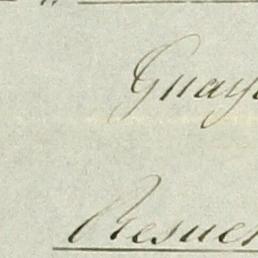 Guay
Resuel